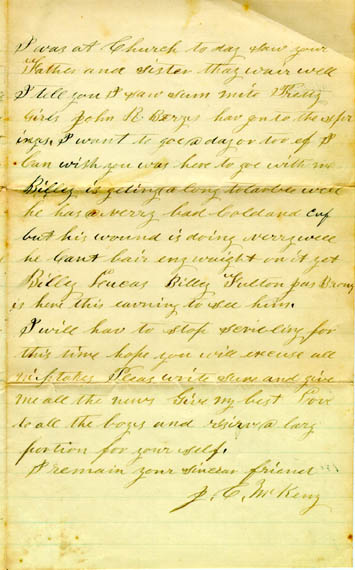 I was at Church to day saw your
Father and sister thay wair well
I tell you I saw sum mite Pretty
Girls John R Berrys hav gon to the spr
ings. I want to go a day or too if I
Can wish you was here to go with me
Billy is geting a long tolarble well
he has a verry bad cold and cof
but his wound is doing verry well
he cant bair eny waight on it yet
Billy Loucas Billy Fulton Jas
is here this eavning to see him.
I will hav to stop scribling for
this time hope you will excuse all
mistakes Pleas write sune and give
me all the news Give my best Love
to all the boys and reserv a larg
portion for your self.
I remain your sincear friend
J. C. McKeny